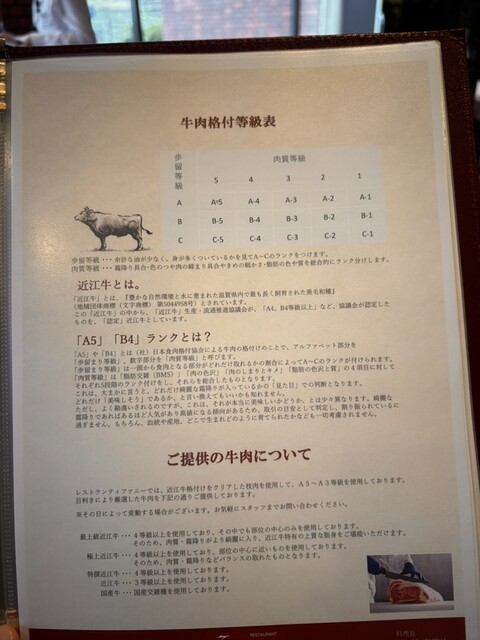 牛肉格付等級表
歩留等級
肉質等級
5 4 3 2 1
A A-5 A-4 A-3 A-2 A-1
B B-5 B-4 B-3 B-2 B-1
C C-5 C-4 C-3 C-2 C-1
歩留等級・・・余計な油が少なく、身が多くついているかを見てA~Cのランクをつけます。
肉質等級・・・霜降り具合・色のつや肉の締まり具合やきめの細かさ・脂肪の色や質を総合的にランク分けします。
近江牛とは。
「近江牛」とは、『豊かな自然環境と水に恵まれた滋賀県内で最も長く飼育された黒毛和種』
(地域団体商標(文字商標) 第5044958号)とされています。
この「近江牛」の中から、「近江牛」生産・流通推進協議会が、「A4、B4等級以上」など、協議会が認定した
ものを、「認定」近江牛としています。
「A5」「B4」ランクとは?
「A5」や「B4」とは(社)日本食肉格付協会による牛肉の格付けのことで、アルファベット部分を
「歩留まり等級」、数字部分を「肉質等級」と呼びます。
「歩留まり等級」は一頭から食肉となる部分がどれだけ取れるかの割合によってA~Cのランクが付けられます。
「肉質等級」は「脂肪交雑(BMS)」「肉の色沢」「肉のしまりとキメ」「脂肪の色沢と質」の4項目に対して
それぞれ5段階のランク付けをし、それらを総合したものとなります。
これは、大まかに言うと、どれだけ綺麗な霜降りが入っているかの「見た目」での判断となります。
どれだけ「美味しそう」であるか、と言い換えてもいいかも知れません。
ただし、よく勘違いされるのですが、これは、それが本当に美味しいかどうか、とは少々異なります。綺麗な
霜降りであればあるほど人気があり高値になる傾向があるため、取引の目安として判定し、割り振られているに
過ぎません。もちろん、血統や産地、どこで生まれどのように育てられたかなども一切考慮されません。
ご提供の牛肉について
レストランティファニーでは、近江牛格付けをクリアした枝肉を使用して、A5~A3等級を使用しております。
目利きにより厳選した牛肉を下記の通りご提供しております。
※その日によって変動する場合がございます。お気軽にスタッフまでお問い合わせください。
最上級近江牛・・・4等級以上を使用しており、その中でも部位の中心のみを使用しております。
そのため、肉質・霜降りがより綺麗に入り、近江牛特有の上質な脂身をご堪能いただけます。
極上近江牛・・・4等級以上を使用しており、部位の中心に近いものを使用しております。
そのため、肉質・霜降りなどバランスの取れたものとなります。
特撰近江牛・・・4等級以上を使用しております。
近江牛・・・3等級以上を使用しております。
国産牛・・・国産交雑種を使用しております。
RESTAURANT
料理長